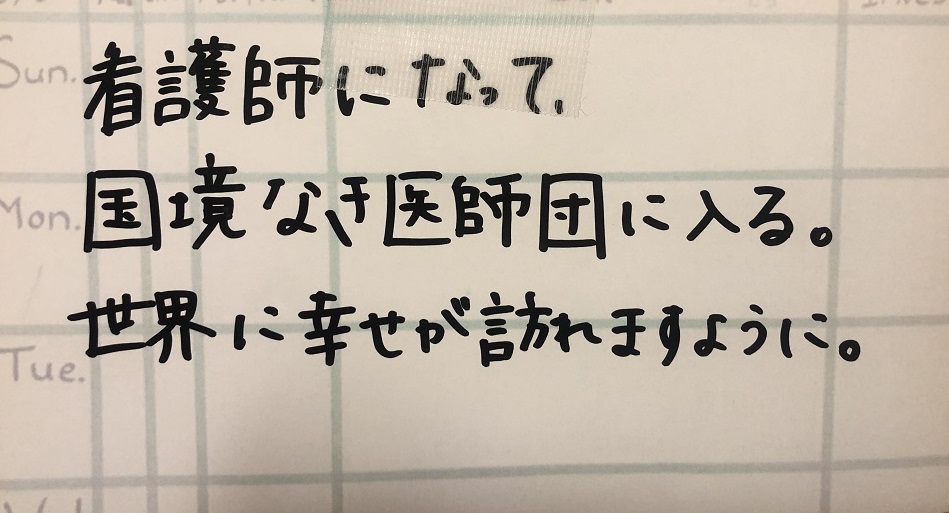 Sun.
看護師になって、
Mon.
国境なき医師団に入る。
世界に幸せが訪れますように。
Tue.